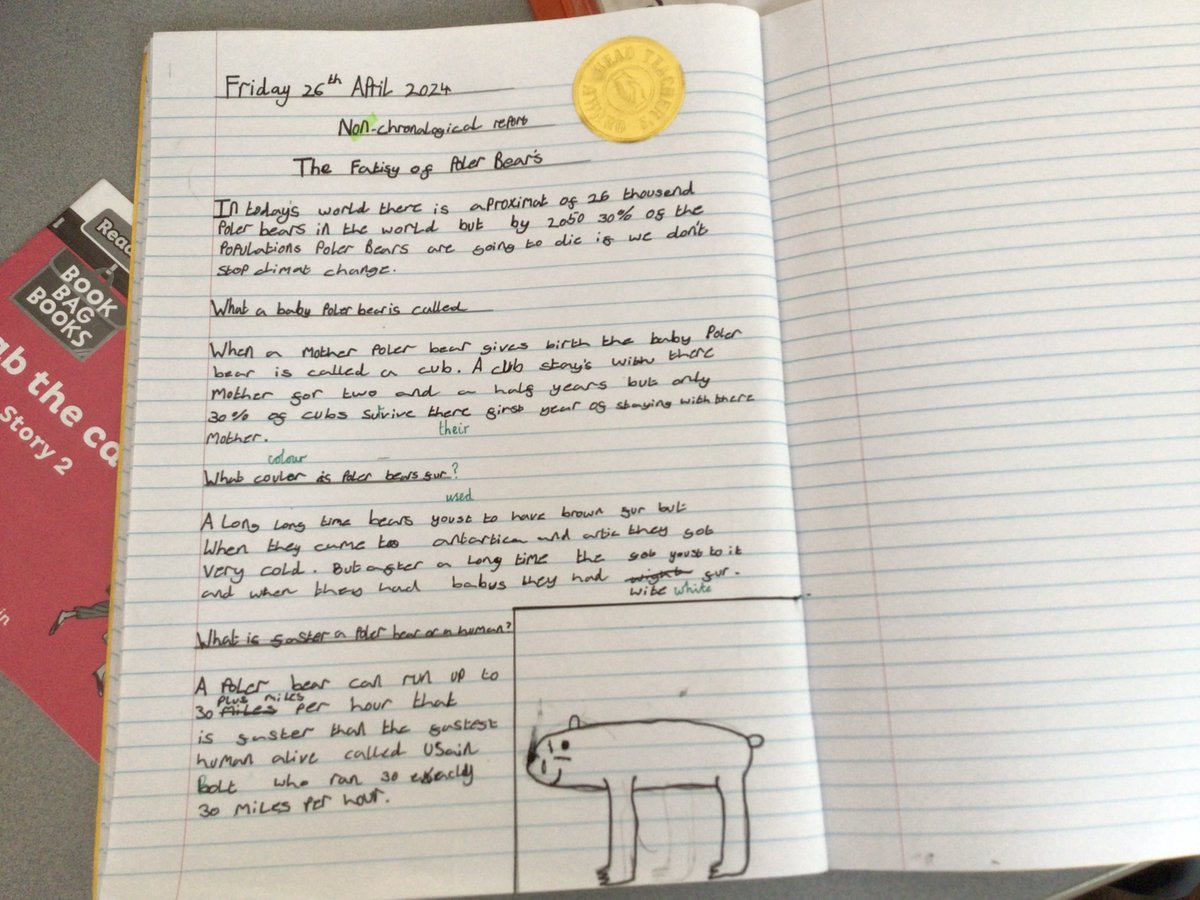 Friday 26th April 2024
Non-chronological report
The Fatisy of Poler Bear's
In today's world there is aproximat of 26 thousend
Poler bears in the world but by 2050 30% of the
Populations Poler Bears are going to die if we don't
stop climat change.
What a baby Poler bear is called
When a Mother Poler bear gives birth the baby Poler
bear is called a cub. A cub stay's with there
Mother for two and a half years but only
30% of cubs survive there first year of staying with there
their
Mother.
colour
What couler is Poler bears fur?
used
A Long Long time bears youst to have brown fur but
When they came to antartica and artic they got
very cold. But after a long time the got youst to it
and when they had babys they had wight fur.
wite white
What is faster a Poler bear or a human?
A Poler bear can run up to
plus miles
30 Miles per hour that
is faster than the fastest
human alive called USain
Bolt who ran 30 exacly
30 Miles Per hour.
HEAD TEACHER'S
Read
BOOK
BAG
BOOKS
ab the ca
story 2
in